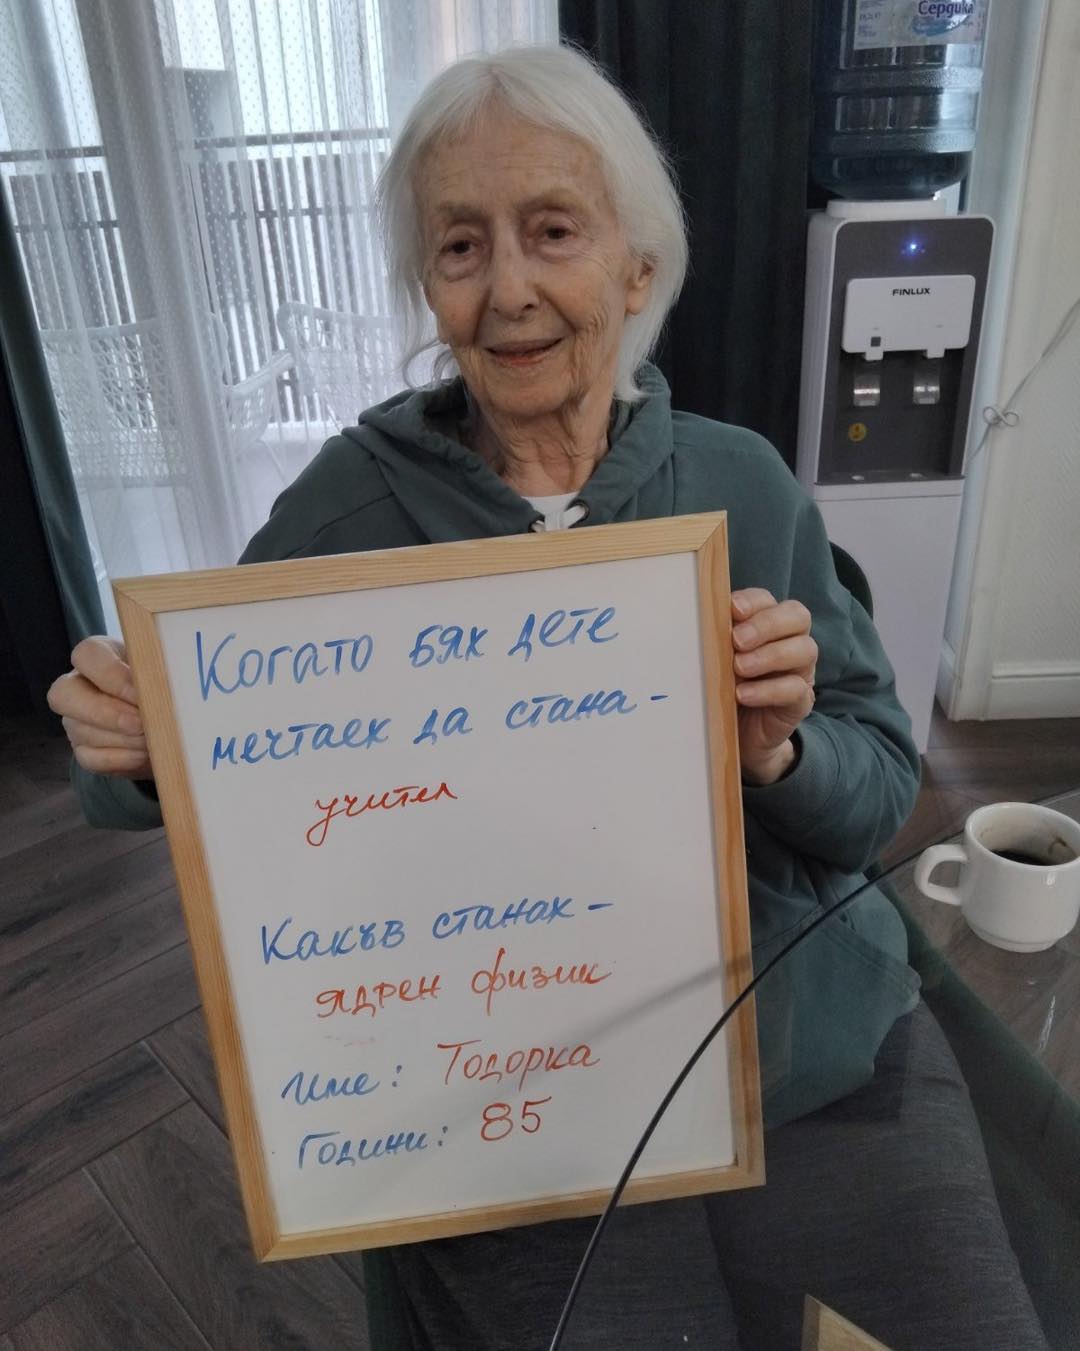 Сердика
FINLUX
Когато бях дете
мечтаех да стана -
учител
Какъв станах -
ядрен физик
Име: Тодорка
Години: 85